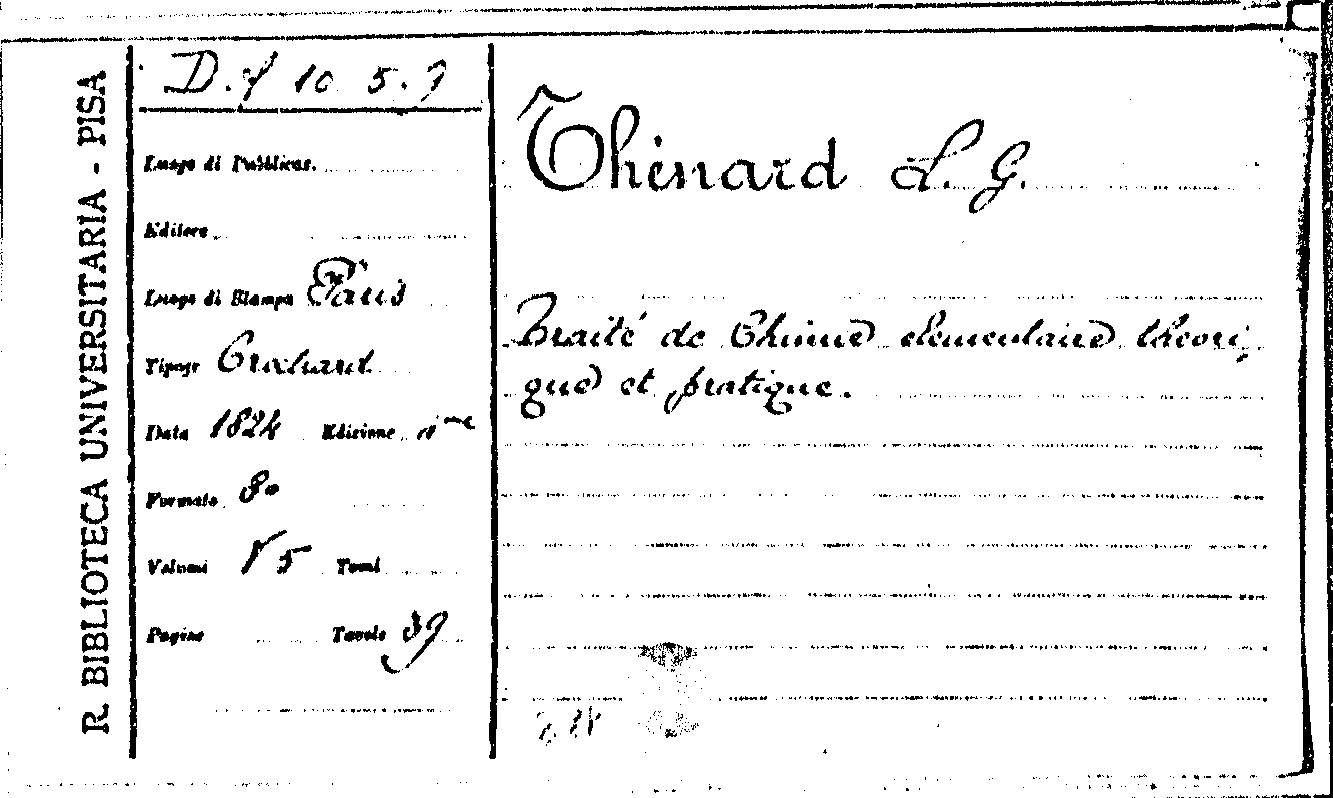 R. BIBLIOTECA UNIVERSITARIA - PISA
D. f 10 5. 7
Luogo di Pubblicaz.
Editore
Luogo di Stampa Paris
Tipogr Crochard
Data 1824 Edizione
Formato 8o
Volumi V 5 Tomi
Pagine Tavole 39
Thénard L. G.
Traité de Chimie elementaire theori,
que et pratique.